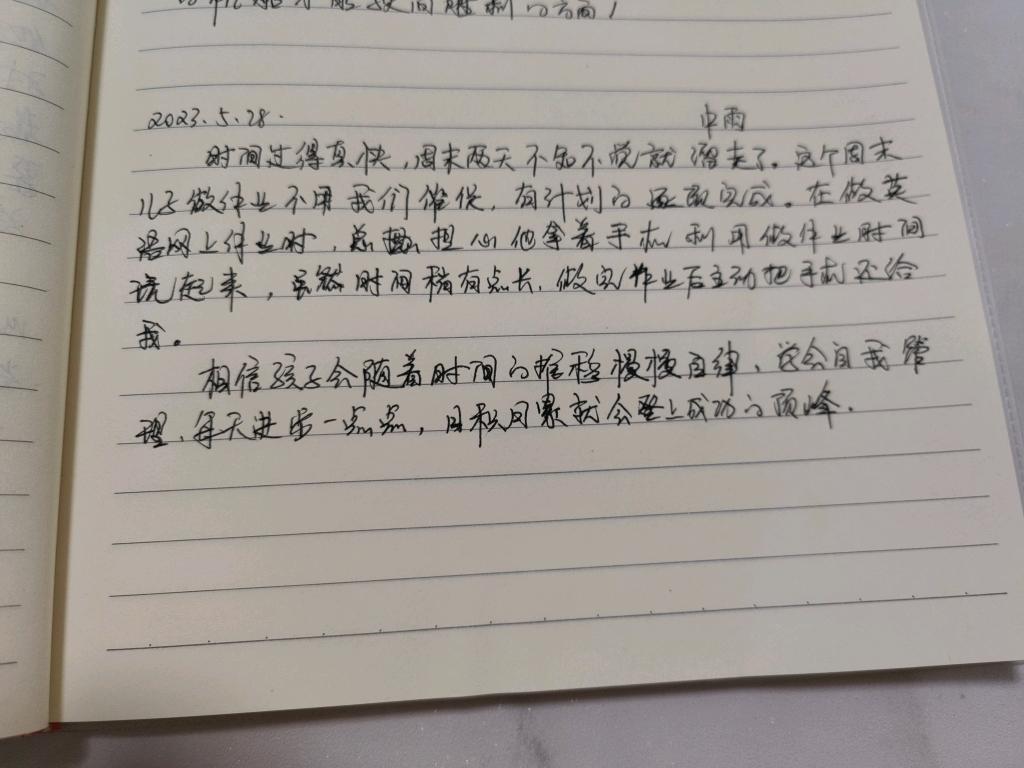 2023.5.28. 中雨
时间过得真快,周末两天不知不觉就溜走了。这个周末
儿子做作业不用我们催促,有计划的 完成。在做英
语网上作业时,总 担心他拿着手机利用做作业时间
玩起来,虽然时间稍有点长,做完作业后主动把手机还给
我。
相信孩子会随着时间的推移慢慢自律、学会自我管
理、每天进步一点点,日积月累就会登上成功的顶峰.